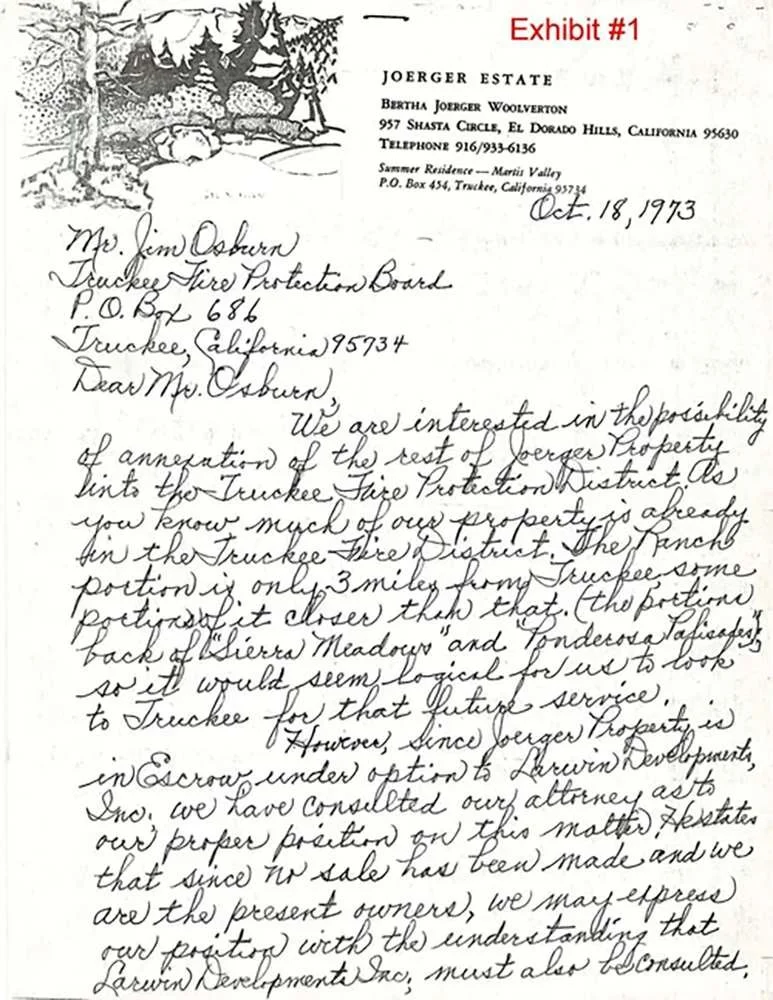 Exhibit #1
JOERGER ESTATE
BERTHA JOERGER WOOLVERTON
957 SHASTA CIRCLE, EL DORADO HILLS, CALIFORNIA 95630
TELEPHONE 916/933-6136
Summer Residence — Martis Valley
P.O. Box 454, Truckee, California 95734
Oct. 18, 1973
Mr. Jim Osburn
Truckee Fire Protection Board
P. O. Box 686
Truckee, California 95734
Dear Mr. Osburn,
We are interested in the possibility
of annexation of the rest of Joerger Property
into the Truckee Fire Protection District. As
you know much of our property is already
in the Truckee Fire District. The Ranch
portion is only 3 miles from Truckee, some
portions of it closer than that. (the portions
back of "Sierra Meadows" and "Ponderosa Palisades",
so it would seem logical for us to look
to Truckee for that future service.
However, since Joerger Property is
in Escrow under option to Larwin Developments,
Inc. we have consulted our attorney as to
our proper position on this matter. He states
that since no sale has been made and we
are the present owners, we may express
our position with the understanding that
Larwin Developments Inc, must also be consulted.